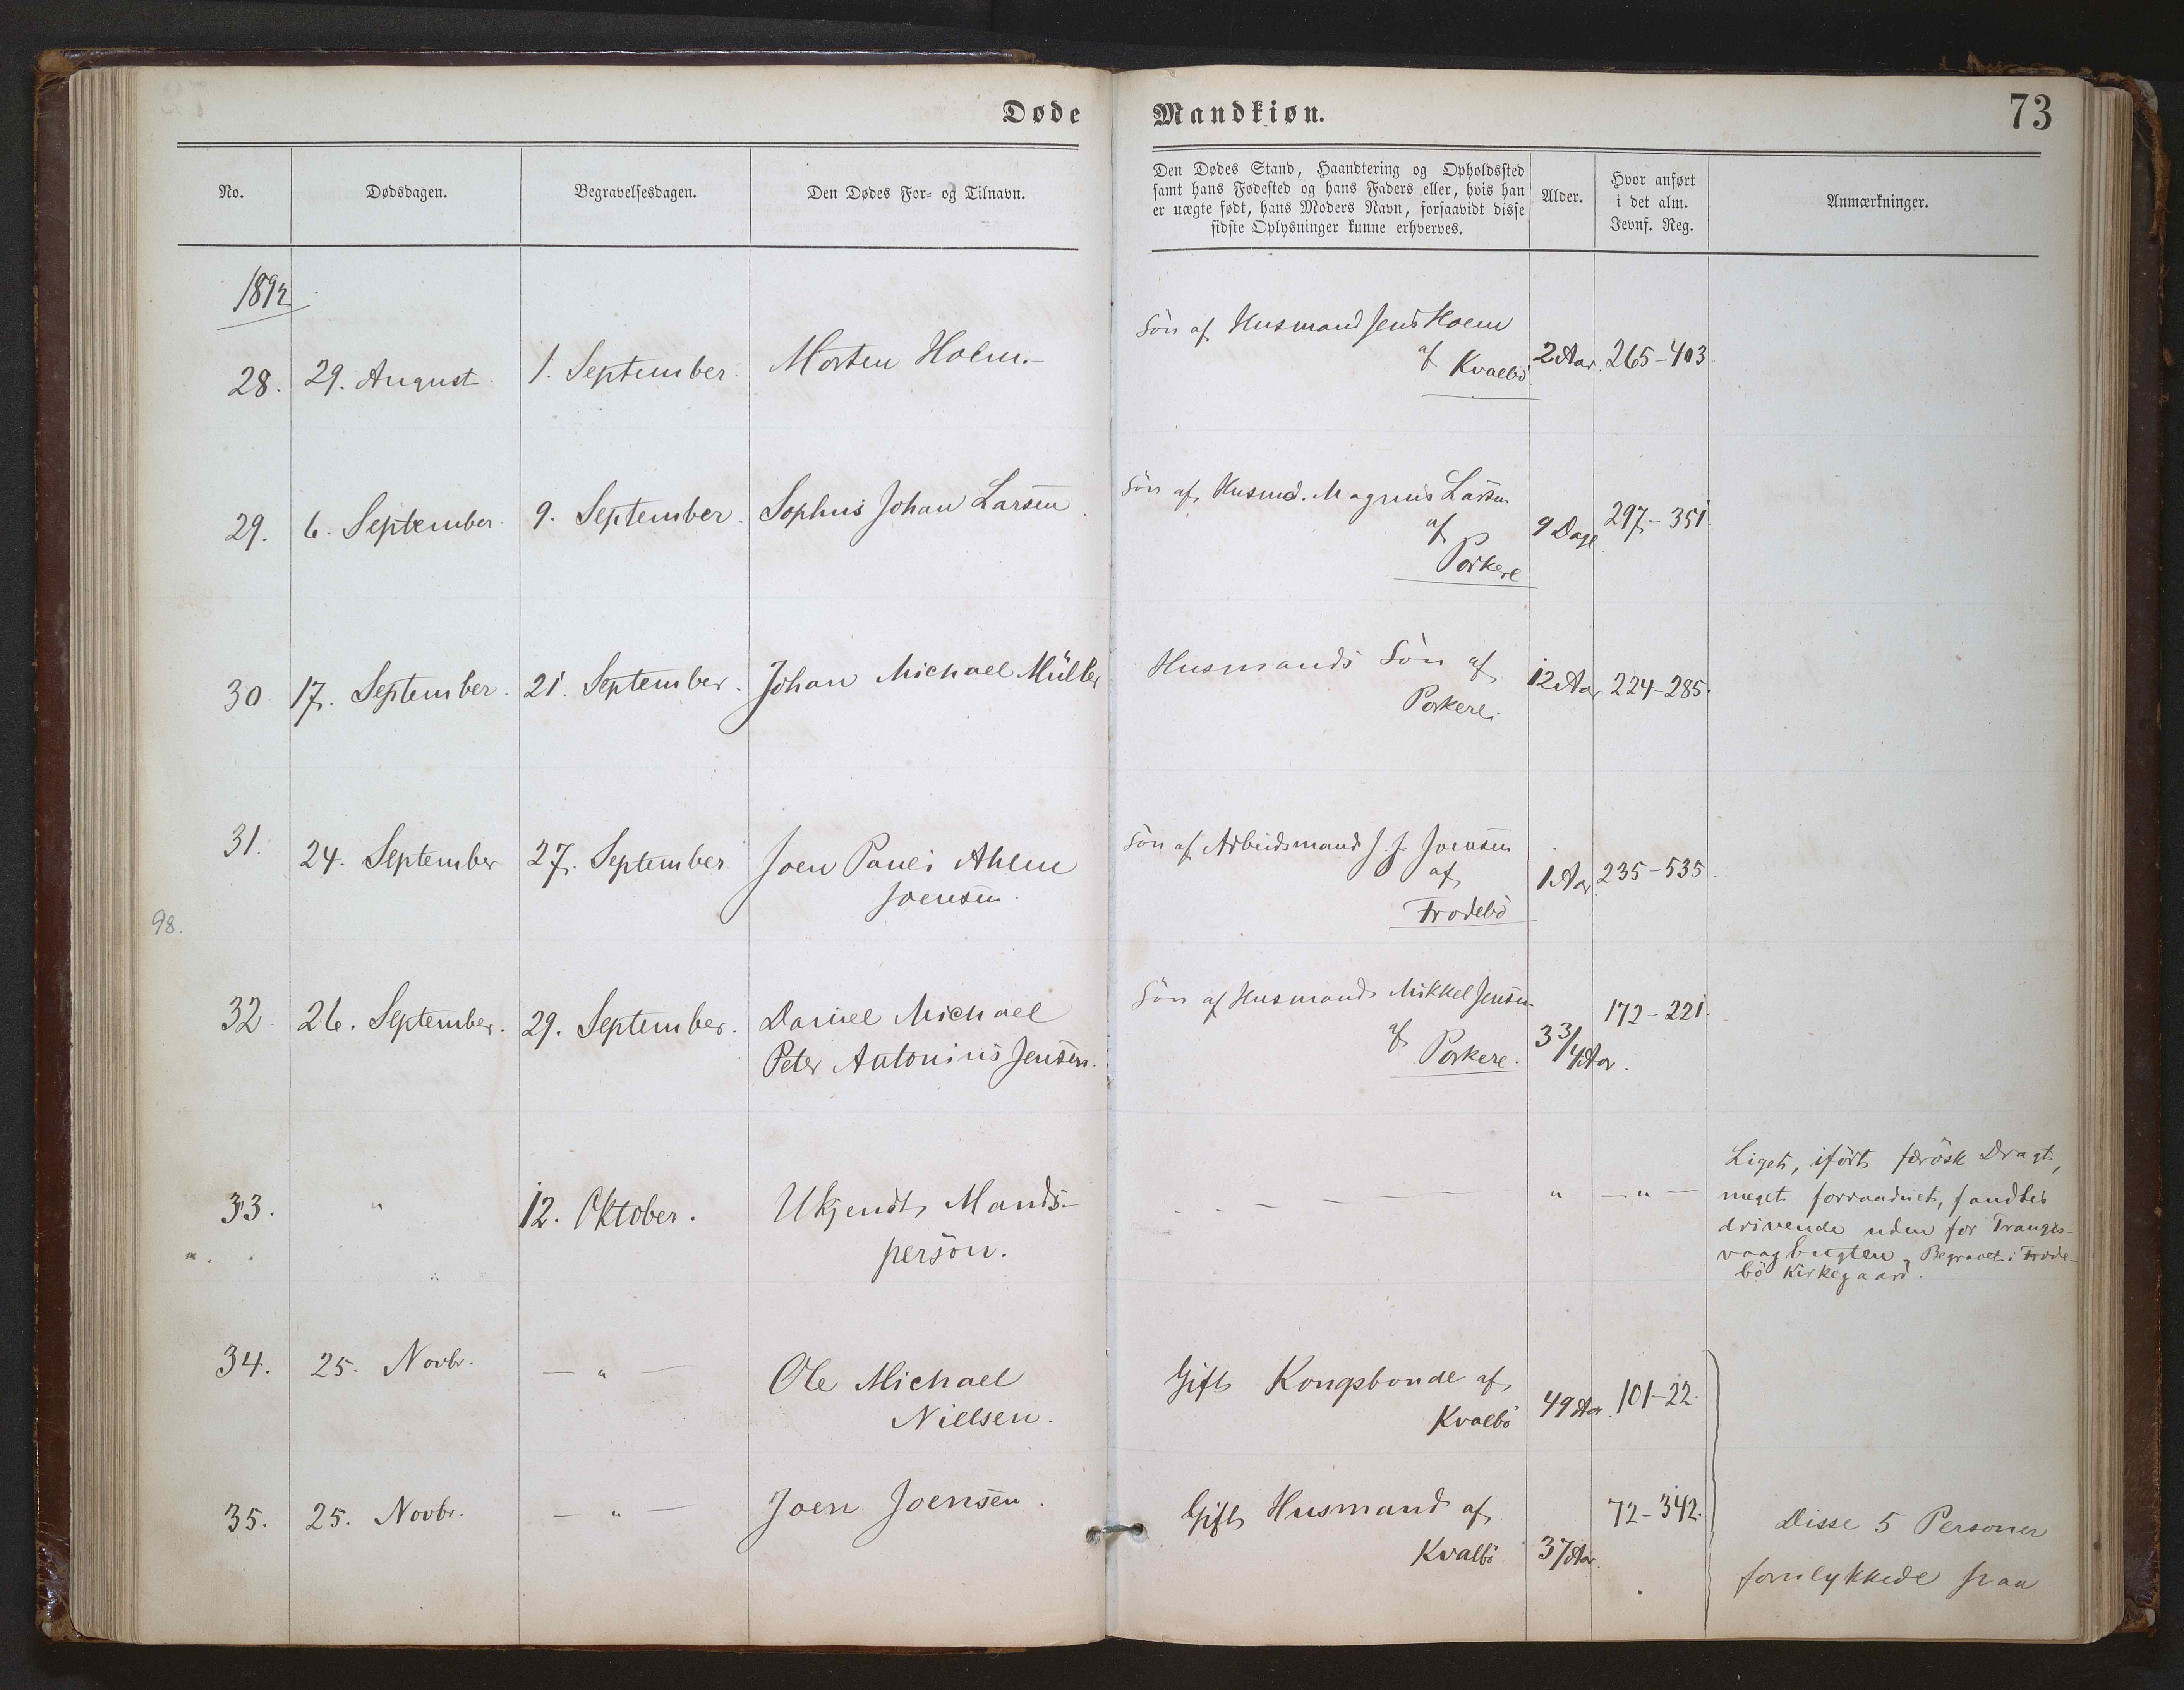 Døde Mandkiøn.
73
No.
Dødsdagen.
Begravelsesdagen.
Den Dødes For- og Tilnavn.
Den Dødes Stand, Haandtering og Opholdssted
samt hans Fødested og hans Faders eller, hvis han
er uægte født, hans Moders Navn, forsaavidt disse
sidste Oplysninger kunne erhverves.
Alder.
Hvor anført
i det alm.
Jevnf. Reg.
Anmærkninger.
1892
28. 29. August. 1. September. Morten Holm.
Søn af Husmand Jens Holm
af Kvalbø 2 Aar. 265-403.
29. 6. September. 9. September. Sophus Johan Larsen.
Søn af Husmd. Magnus Larsen
af
Porkere
9 Dage 297-351.
30. 17. September. 21. September. Johan Michael Müller
Husmands Søn af
Porkere.
12 Aar 224-285.
31. 24. September 27. September Joen Pauli Ahlm
Joensen.
Søn af Arbeidsmand J. J. Joensen
af
Frodebø
1 Aar 235-535.
98.
32. 26. September. 29. September. Daniel Michael
Peter Antonius Jensen.
Søn af Husmand Mikkel Jensen
af Porkere.
3 3/4 Aar. 172-221.
33. " 12. Oktober. Ukjendt Mands-
person.
- - - — — — " —"—
Liget, iført færøsk Dragt,
meget forraadnet, fandtes
drivende uden for Trangis-
vaagbugten, Begravet i Frode-
bø Kirkegaard.
34. 25. Novbr. — " — Ole Michael
Nielsen.
Gift Kongsbonde af
Kvalbø
49 Aar. 101-22.
35. 25. Novbr. — " — Joen Joensen.
Gift Husmand af
Kvalbø
37 Aar. 72-342.
Disse 5 Personer
forulykkede paa